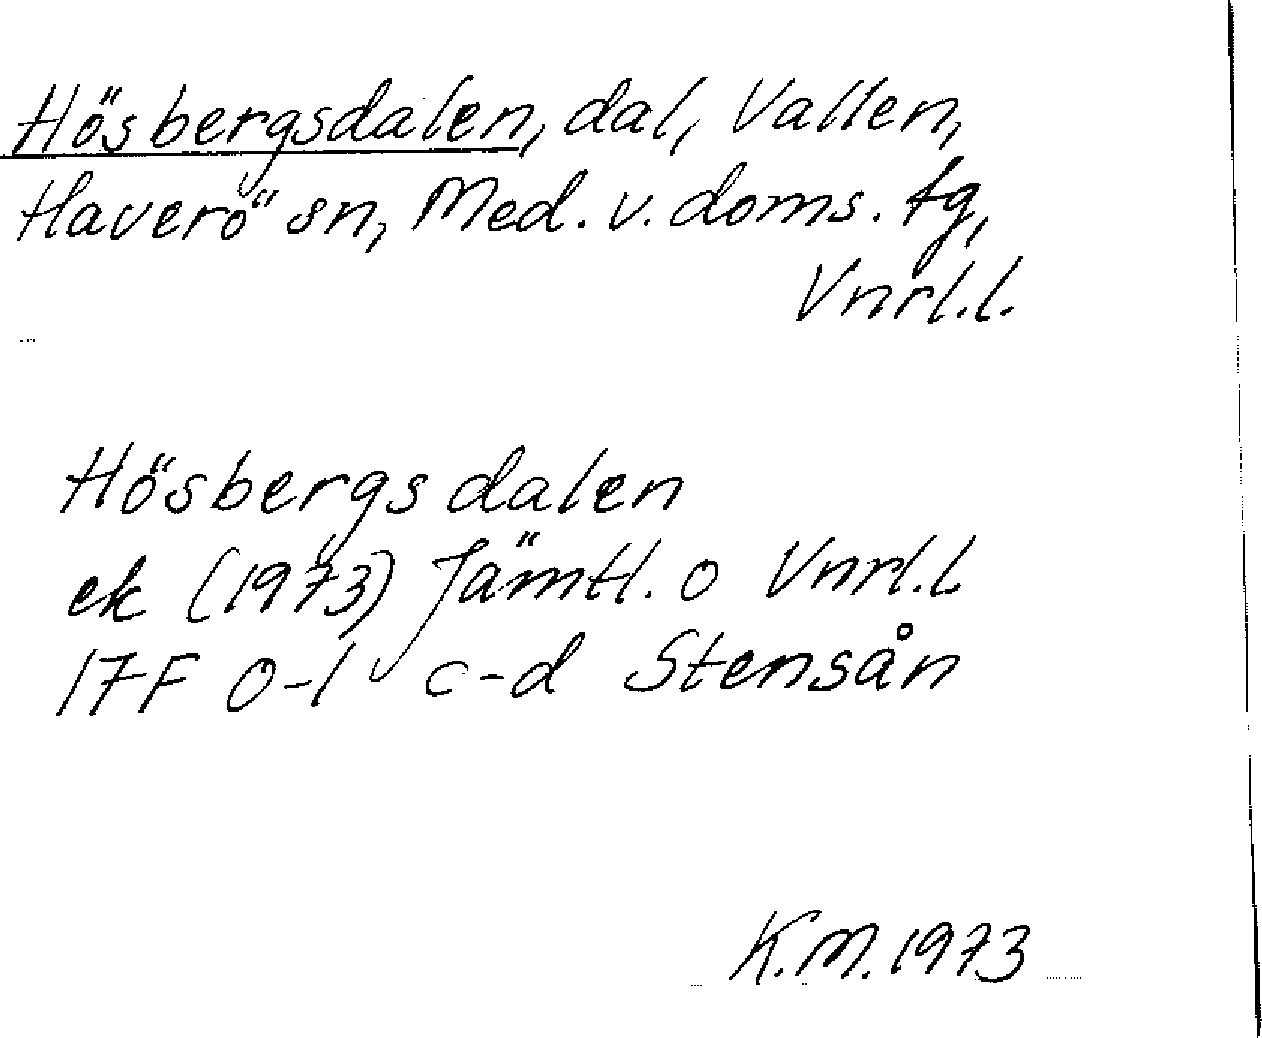 Hösbergsdalen, dal, Vallen,
Haverö sn, Med. v. doms. tg,
Vnrl.l.
Hösbergsdalen
ek (1973) Jämtl. o Vnrl.l
17F 0-1 c-d Stensån
K.M. 1973